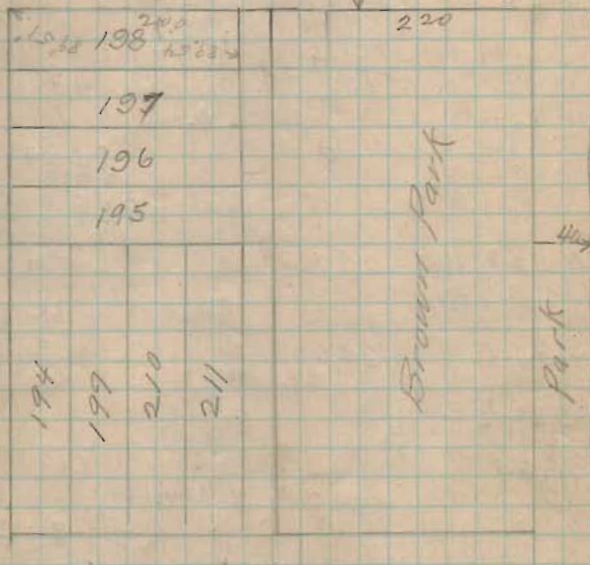 198
220
197
196
195
194
199
210
211
Brown Park
40
Park